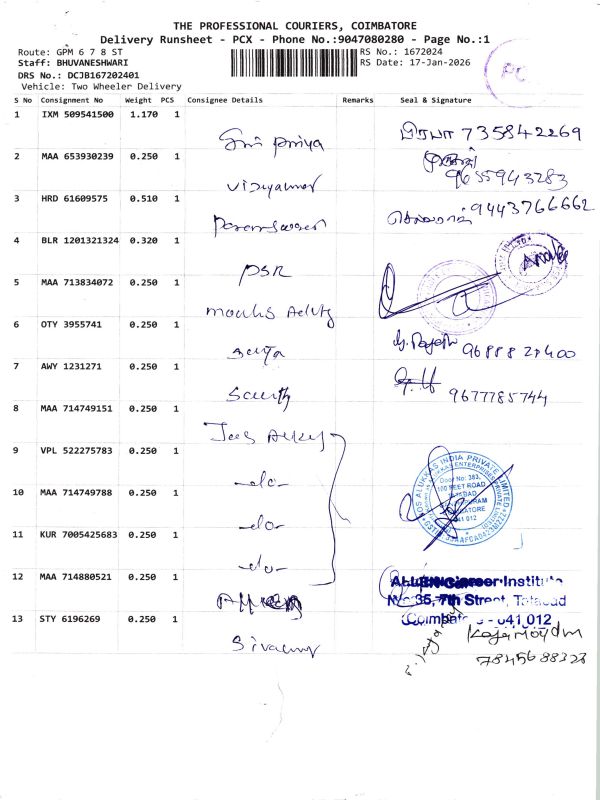 THE PROFESSIONAL COURIERS, COIMBATORE
Delivery Runsheet - PCX - Phone No.:9047080280 - Page No.:1
Route: GPM 6 7 8 ST
RS No.: 1672024
Staff: BHUVANESHWARI
RS Date: 17-Jan-2026
DRS No.: DCJB167202401
Vehicle: Two Wheeler Delivery
PC
S No Consignment No Weight PCS Consignee Details Remarks Seal & Signature
1 IXM 509541500 1.170 1
Sri priya பிரியா 735842269
2 MAA 653930239 0.250 1
9655943283
3 HRD 61609575 0.510 1
9443766662
4 BLR 1201321324 0.320 1
PSR
5 MAA 713834072 0.250 1
6 OTY 3955741 0.250 1
G. Rajesh
7 AWY 1231271 0.250 1
9677785744
8 MAA 714749151 0.250 1
Jos Alukkas
9 VPL 522275783 0.250 1
-do-
JOS ALUKKAS INDIA PRIVATE LIMITED
Door No: 383,
100 FEET ROAD
10 MAA 714749788 0.250 1
-do-
11 KUR 7005425683 0.250 1
-do-
12 MAA 714880521 0.250 1
ALLEN Career Institute
No: 35, 7th Street, Tatabad
Coimbatore - 641 012
13 STY 6196269 0.250 1
7845688323